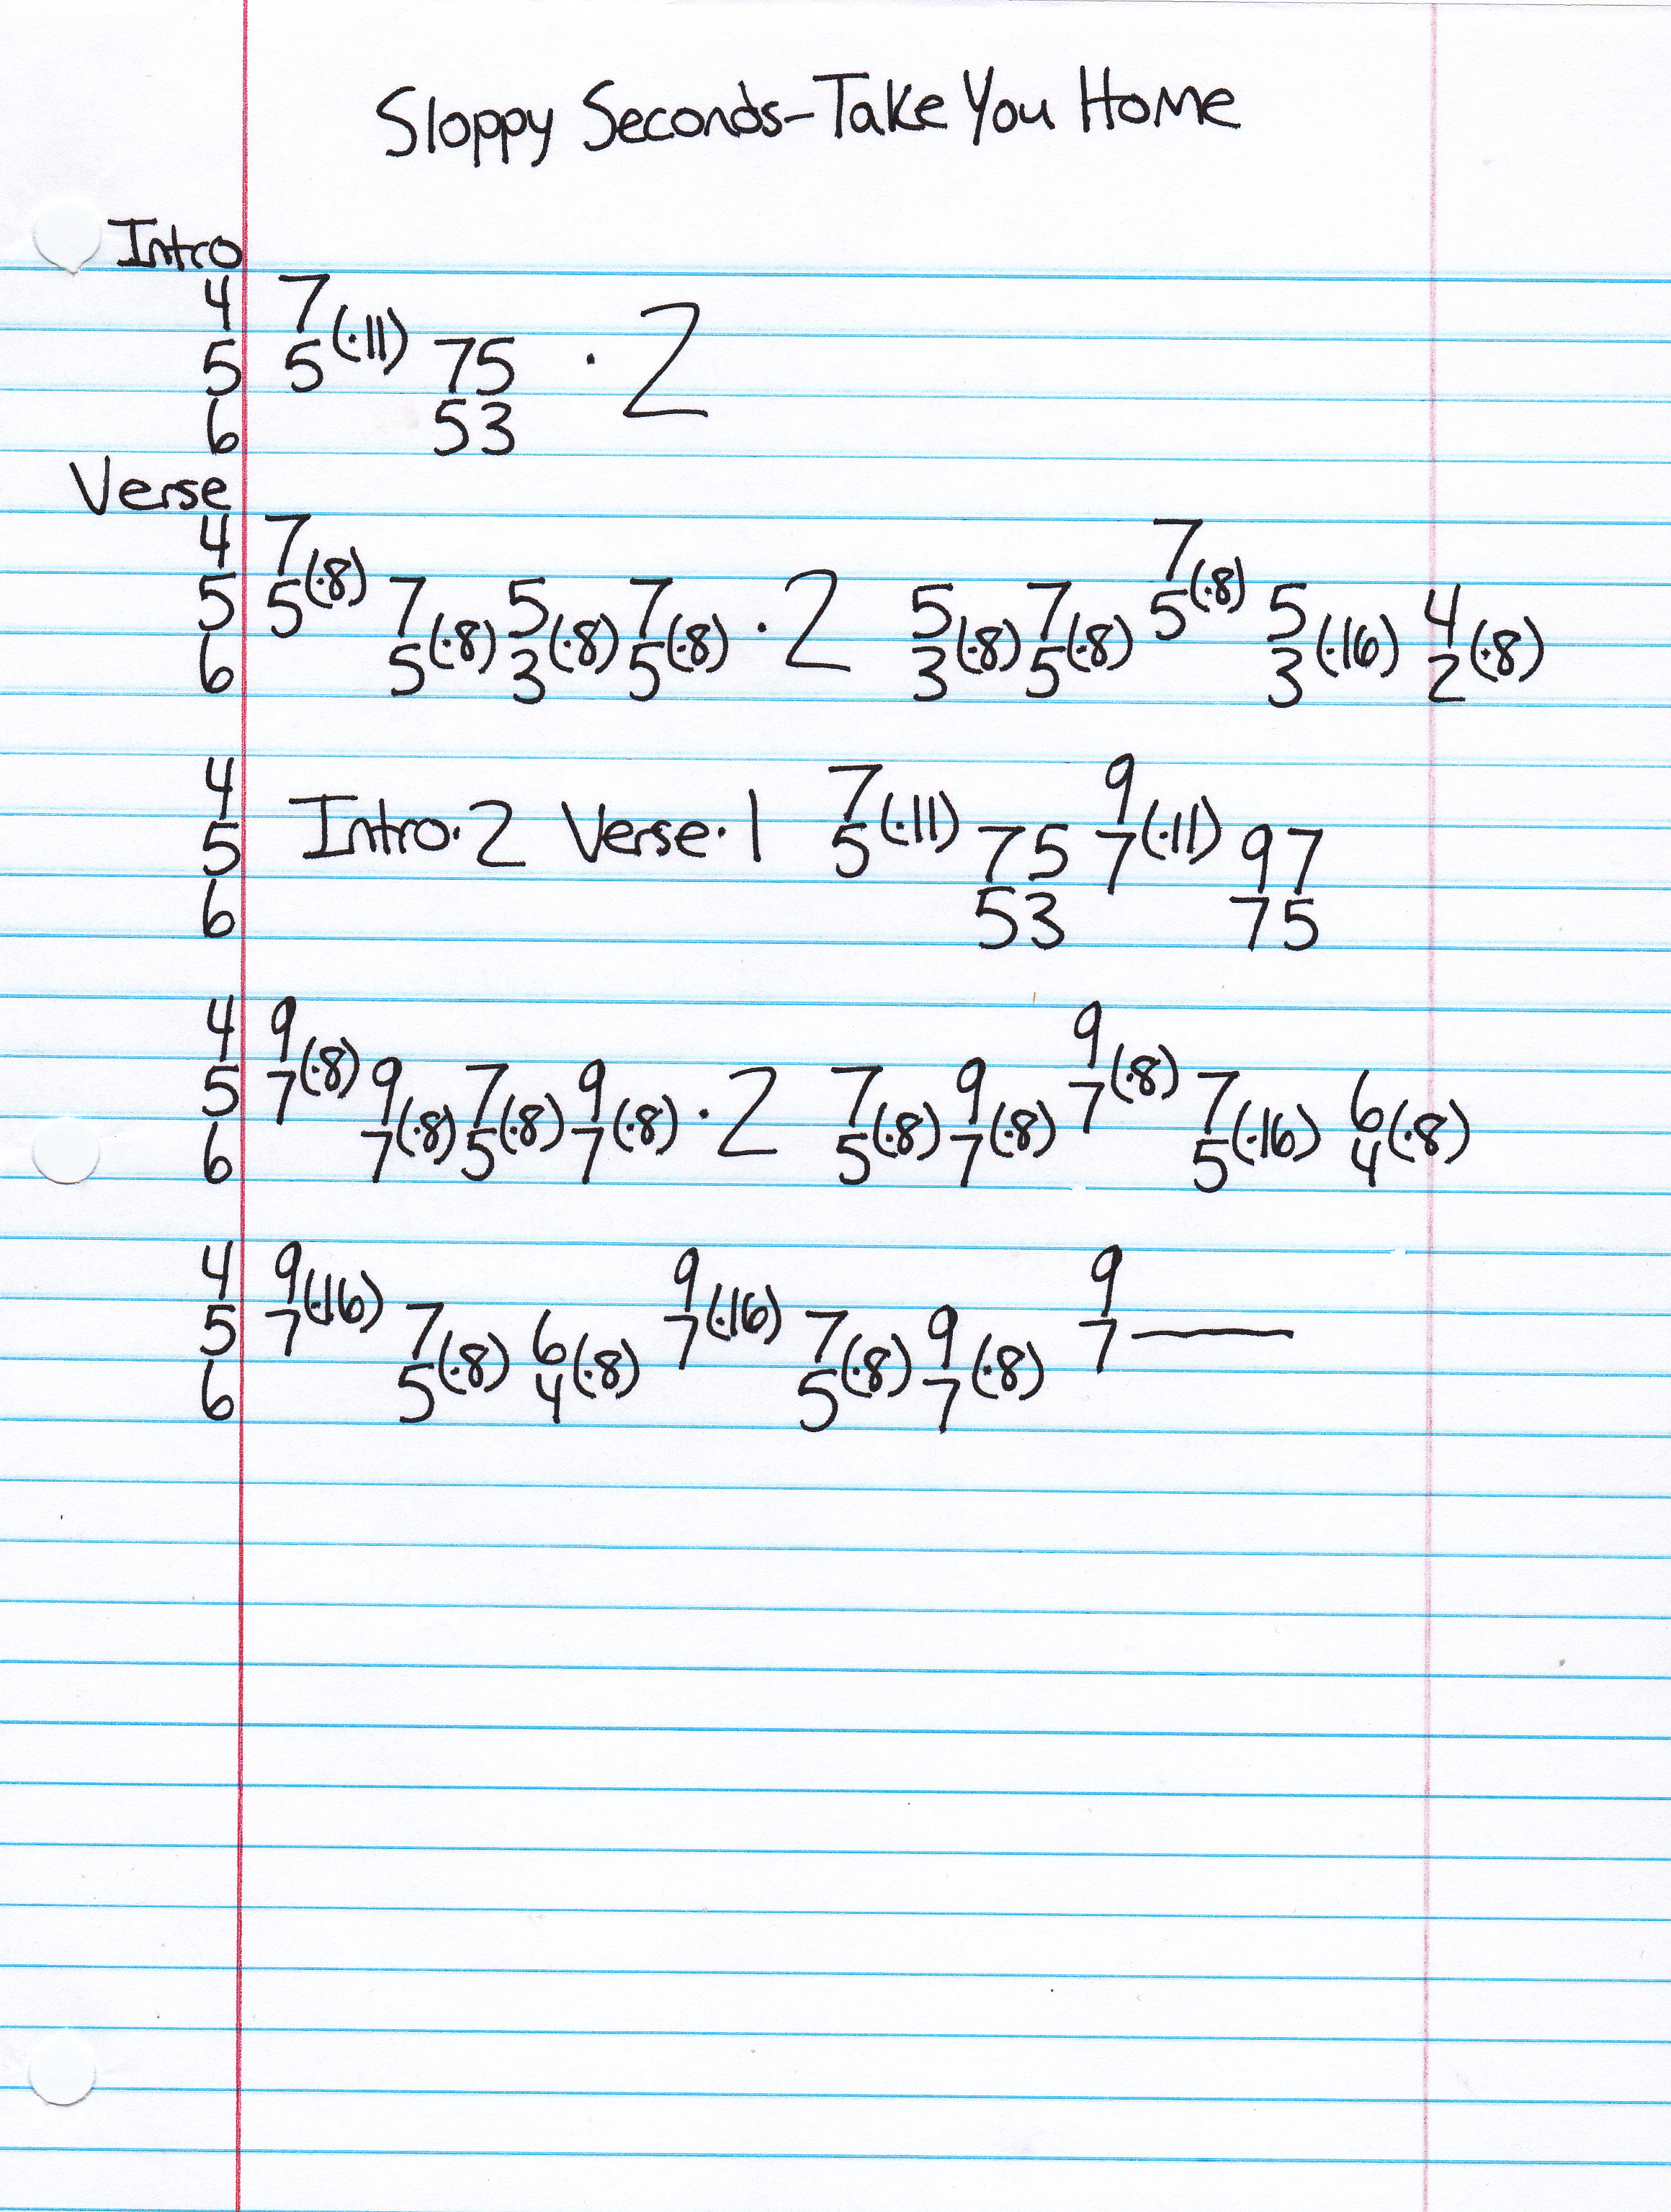 Sloppy Seconds-Take You Home
Intro
4 7
5 5(·11) 75 ·2
6 53
Verse
4 7(·8) 7(·8)
5 5 7(·8) 5(·8) 7(·8) ·2 5(·8) 7(·8) 5 5(·16) 4(·8)
6 5 3 5 3 5 3 2
4 7(·11) 9(·11)
5 Intro·2 Verse·1 5 75 7 97
6 53 75
4 9(·8) 9(·8)
5 7 9(·8) 7(·8) 9(·8) ·2 7(·8) 9(·8) 7 7(·16) 6(·8)
6 7 5 7 5 7 5 4
4 9(·16) 9(·16) 9
5 7 7(·8) 6(·8) 7 7(·8) 9(·8) 7—
6 5 4 5 7